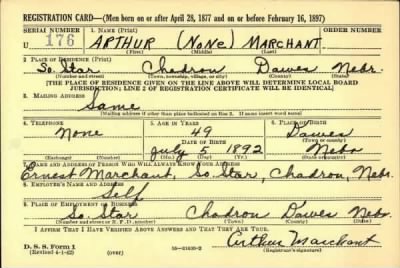 REGISTRATION CARD—(Men born on or after April 28, 1877 and on or before February 16, 1897)
SERIAL NUMBER 1. NAME (Print) ORDER NUMBER
U 176 ARTHUR (NONE) MARCHANT
(First) (Middle) (Last)
2. PLACE OF RESIDENCE (Print)
So. Star Chadron Dawes Nebr.
(Number and street) (Town, township, village, or city) (County) (State)
[THE PLACE OF RESIDENCE GIVEN ON THE LINE ABOVE WILL DETERMINE LOCAL BOARD
JURISDICTION; LINE 2 OF REGISTRATION CERTIFICATE WILL BE IDENTICAL]
3. MAILING ADDRESS
Same
[Mailing address if other than place indicated on line 2. If same insert word same]
4. TELEPHONE 5. AGE IN YEARS 6. PLACE OF BIRTH
None 49 Dawes
DATE OF BIRTH (Town or county)
July 5 1892 Nebr
(Exchange) (Number) (Mo.) (Day) (Yr.) (State or country)
7. NAME AND ADDRESS OF PERSON WHO WILL ALWAYS KNOW YOUR ADDRESS
Ernest Marchant, So. Star, Chadron, Nebr.
8. EMPLOYER'S NAME AND ADDRESS
Self
9. PLACE OF EMPLOYMENT OR BUSINESS
So. Star Chadron Dawes Nebr.
(Number and street or R. F. D. number) (Town) (County) (State)
I AFFIRM THAT I HAVE VERIFIED ABOVE ANSWERS AND THAT THEY ARE TRUE.
D. S. S. Form 1 Arthur Marchant
(Revised 4-1-42) (over) (Registrant's signature)